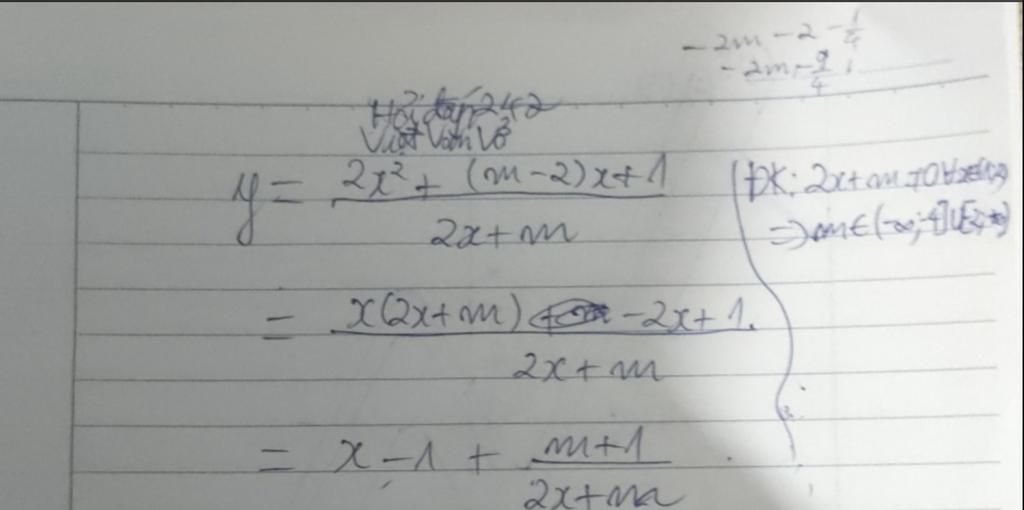 - 2m - 2 - 1/4
- 2m - 9/4
Hỏi đáp 242
Việt Vom Vở
y = (2x² + (m-2)x + 1)/(2x + m)
ĐK: 2x + m ≠ 0 ∀x∈
⇒ m ∈ (-∞; -4] ∪ [
= (x(2x + m) - 2x + 1)/(2x + m)
= x - 1 + (m + 1)/(2x + m)